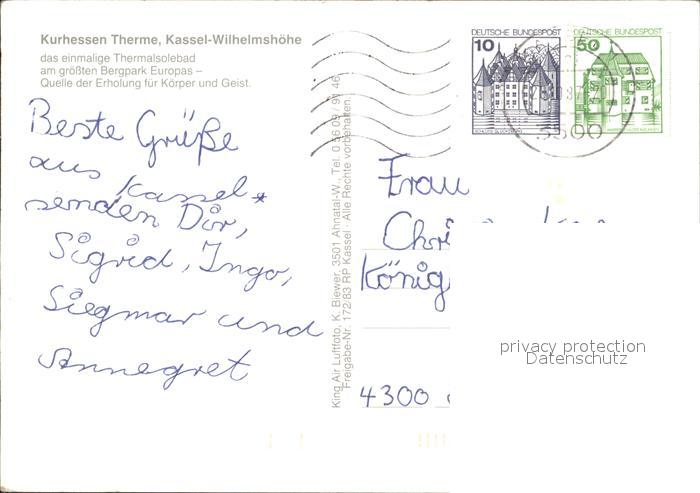 Kurhessen Therme, Kassel-Wilhelmshöhe
das einmalige Thermalsolebad
am größten Bergpark Europas –
Quelle der Erholung für Körper und Geist.
Beste Grüße
aus Kassel *
senden Dir,
Sigrid, Ingo,
Siegmar und
Annegret
King Air Luftfoto, K. Biewer, 3501 Ahnatal-W., Tel. 0 56 09 / 91 46
Freigabe-Nr. 172/83 RP Kassel · Alle Rechte vorbehalten.
DEUTSCHE BUNDESPOST
10
SCHLOSS GLÜCKSBURG
DEUTSCHE BUNDESPOST
50
3500
Frau
Chri
König
4300
privacy protection
Datenschutz